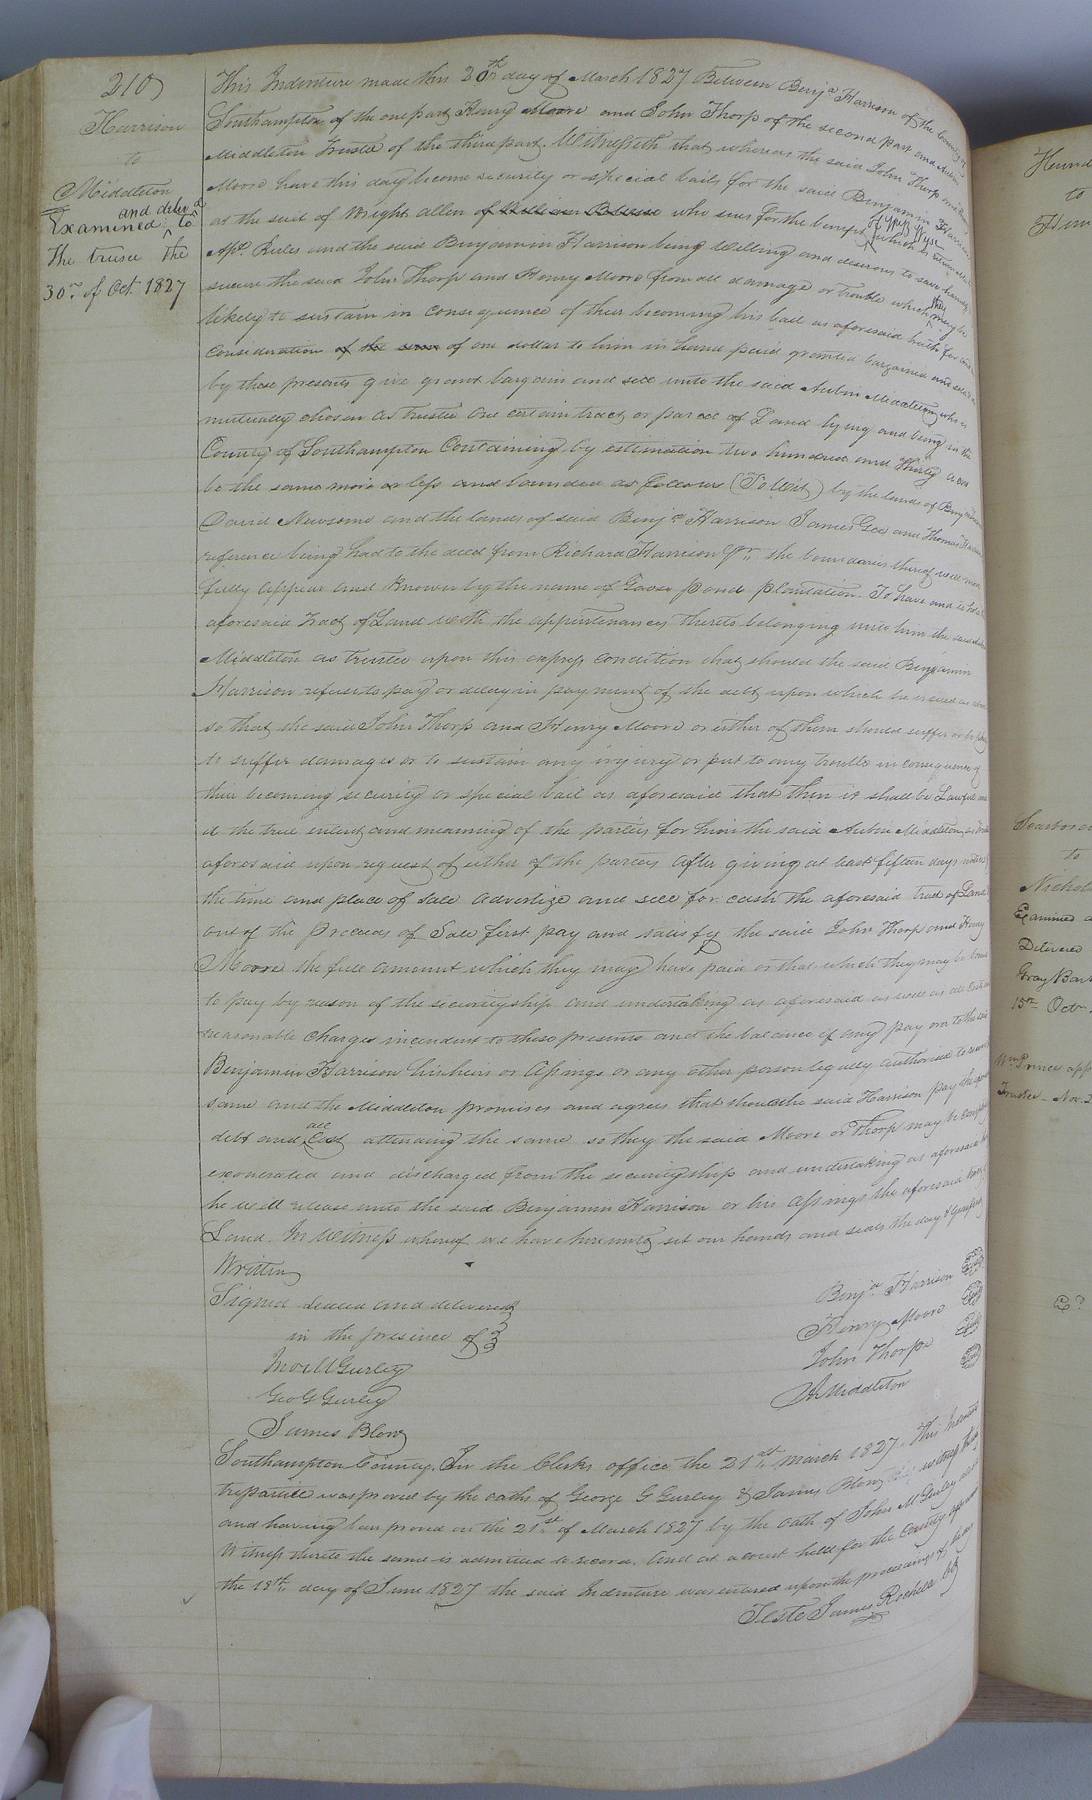 210
Harrison
to
Middleton
Examined and deliv'd to
the trusee the
30th of Oct 1827
This Indenture made this 20th day of March 1827 Between Benja Harrison of the County of
Southampton of the one part Henry Moore and John Thorp of the second part and Aubin
Middleton Trustee of the third part. Witnesseth that whereas the said John Thorp and Henry
Moore have this day become security or special bail for the said Benjamin Harrison
at the suit of Wright Allen of William Blow who sues for the benefit of which is
Apl. Rules and the said Benjamin Harrison being willing and desirous to save harmless
secure the said John Thorp and Henry Moore from all damage or trouble which they may be
likely to sustain in consequence of their becoming his bail as aforesaid hath for and in
consideration of the sum of one dollar to him in hand paid granted bargained and sold and
by these presents give grant bargain and sell unto the said Aubin Middleton who is
mutually chosen as trustee one certain tract or parcel of Land lying and being in the
County of Southampton Containing by estimation two hundred and thirty acres
be the same more or less and bounded as follows (To Wit,) by the lands of Benj
David Newsoms and the lands of said Benja Harrison James Gee and Thomas
reference being had to the deed from Richard Harrison the boundaries thereof will more
fully appear and known by the name of Goose Pond Plantation. To have and to hold the
aforesaid tract of Land with the appurtenances thereto belonging unto him the said Aubin
Middleton as trustee upon this express condition that should the said Benjamin
Harrison refuse to pay or delay in payment of the debt upon which he is sued as above
so that the said John Thorp and Henry Moore or either of them should suffer or be
to suffer damages or to sustain any injury or put to any trouble in consequence of
their becoming security or special bail as aforesaid that then it shall be Lawful and
it the true intent and meaning of the parties for him the said Aubin Middleton as trustee
aforesaid upon request of either of the parties after giving at least fifteen days notice of
the time and place of sale advertize and sell for cash the aforesaid tract of Land
out of the Proceeds of Sale first pay and satisfy the said John Thorp and Henry
Moore the full amount which they may have paid or that which they may be bound
to pay by reason of the securityship and undertaking as aforesaid as well as all
reasonable charges incendent to these presents and the balance if any pay over to the said
Benjamin Harrison his heirs or Assings or any other person legally authorised to receive
same and the Middleton promises and agrees that should the said Harrison pay the
debt and all Cost attending the same so they the said Moore or Thorp may be
exonerated and discharged from the securityship and undertaking as aforesaid
he will release unto the said Benjamin Harrison or his Assings the aforesaid tract of
Land. In Witness whereof we have hereunto set our hands and seals the day & year first
Written
Signed sealed and delivered
in the presence of
Jno M Gurley
Geo G Gurley
James Blow
Benja Harrison Seal
Henry Moore Seal
John Thorpe Seal
A Middleton Seal
Southampton County. In the Clerks office the 21st March 1827. This Indenture
trepartite was proved by the oaths of George G Gurley & James Blow
and having been proved on the 21st of March 1827 by the oath of John M Gurley
Witness thereto the same is admitted to record. And at a court held for the County
the 18th day of June 1827 the said Indenture was entered upon the proceedings of
Teste James Rochelle
to
Nichol
Examined
Delivered
Gray Bar
15th Octr
Trustee - Nov. 2